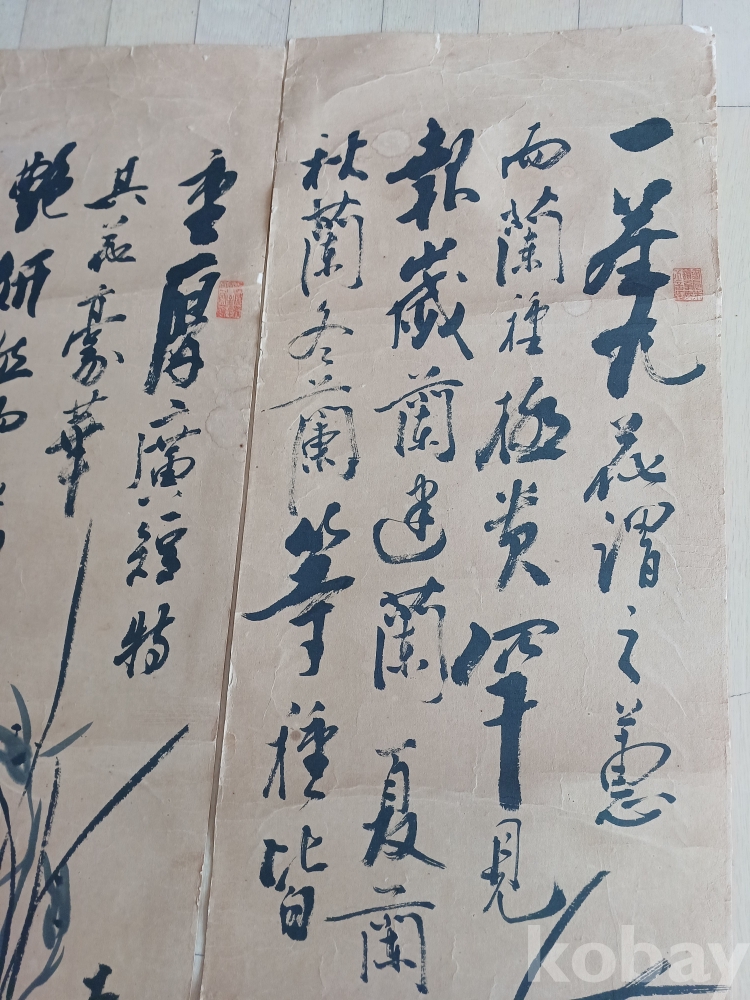 一莖九花謂之蕙
而蘭種極貴罕見
報歲蘭建蘭夏蘭
秋蘭冬蘭等種皆
重厚廣短特
其花豪華
艶妍然而
kobay